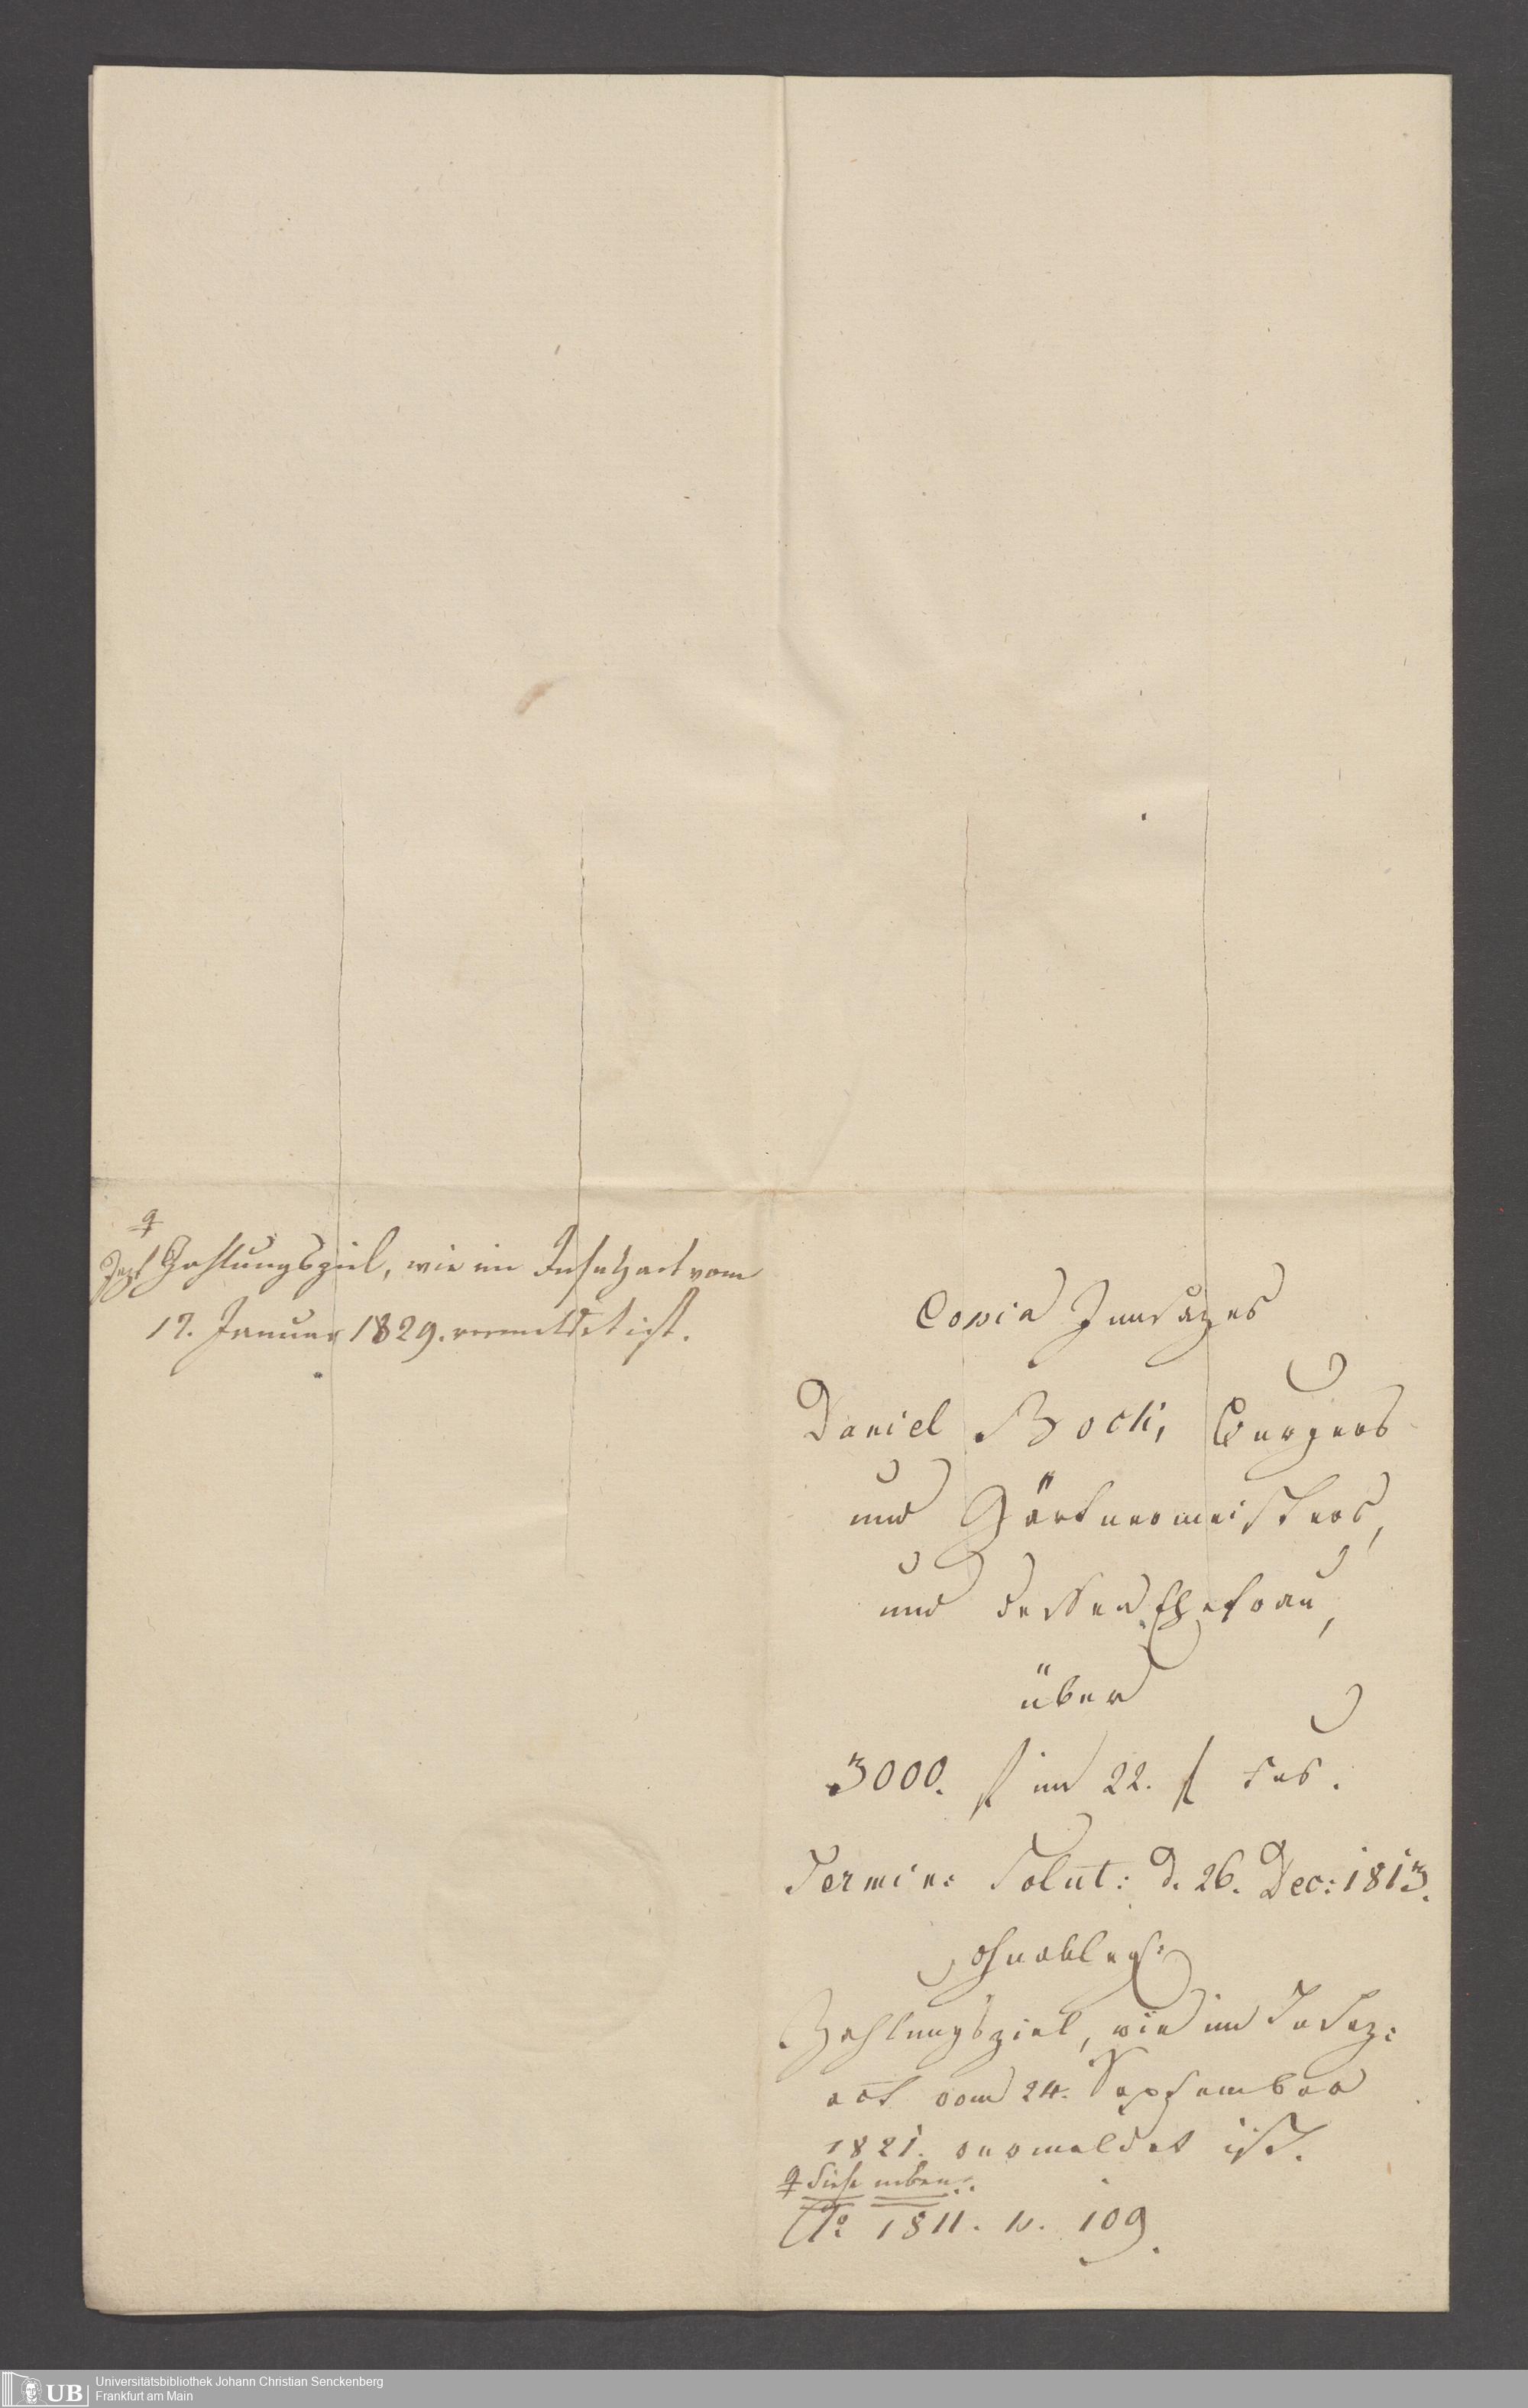 ♀
Jezt Zahlungsziel, wie im Insatzact vom
17. Januar 1829. vermeldet ist.
Copia Innsazes
Daniel Bock, Burgers
und Gärtnermeisters,
und dessen Ehefrau,
über
3000. f im 22. f Fus.
Termin: Solut: d. 26. Dec: 1813.
ohnableg:
Zahlungsziel, wie im Insaz:
act vom 24. September
1821. vermeldet ist.
♀ Siehe neben.
Ao 1811. N. 109.
Universitätsbibliothek Johann Christian Senckenberg
UB Frankfurt am Main